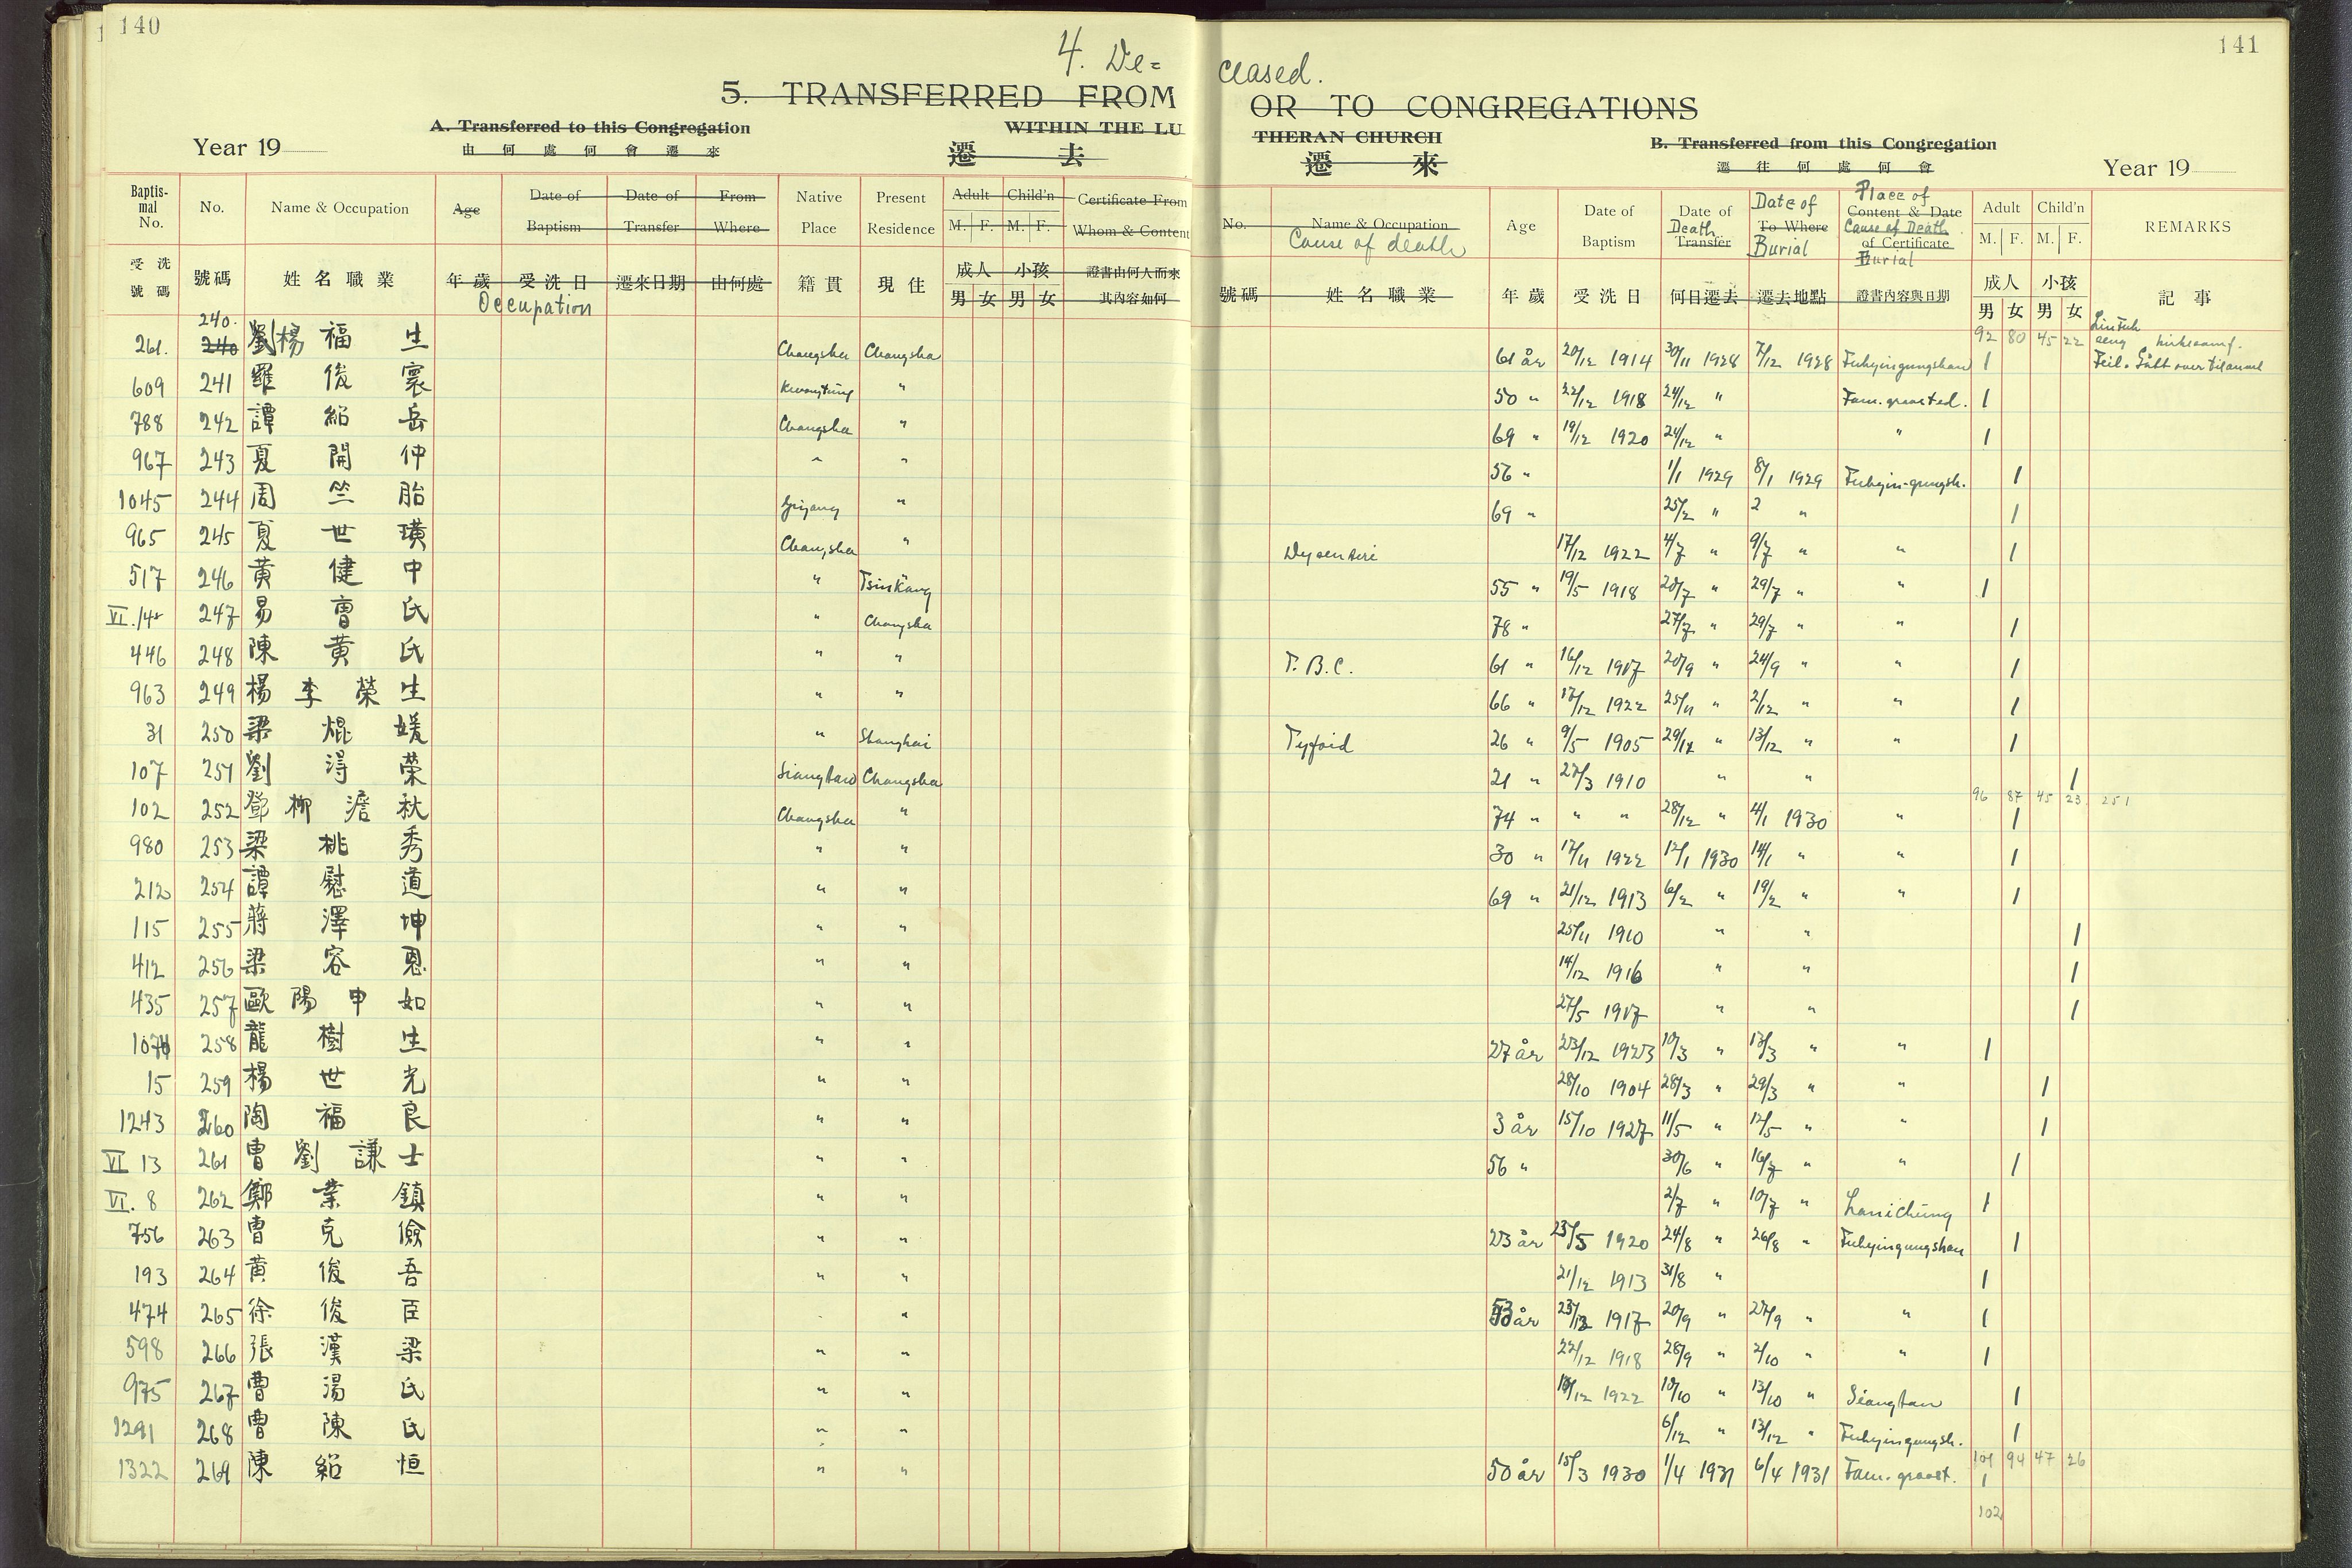 140
141
4. De=
ceased.
5. TRANSFERRED FROM
OR TO CONGREGATIONS
A. Transferred to this Congregation
WITHIN THE LU
THERAN CHURCH
B. Transferred from this Congregation
Year 19
由何處何會遷來
遷去
遷來
遷往何處何會
Year 19
Baptis-mal No. No. Name & Occupation Age Date of Baptism Date of Transfer From Where Native Place Present Residence Adult M. F. Child'n M. F. Certificate From Whom & Content
受洗號碼 號碼 姓名職業 年歲 受洗日 遷來日期 由何處 籍貫 現住 成人 男 女 小孩 男 女 證書由何人而來其內容如何
Occupation
No. Name & Occupation Cause of death Age Date of Baptism Date of Death Transfer Date of To Where Burial Place of Content & Date Cause of Death of Certificate Burial Adult M. F. Child'n M. F. REMARKS
號碼 姓名職業 年歲 受洗日 何日遷去 遷去地點 證書內容與日期 成人 男 女 小孩 男 女 記事
92 80 45 22
261. 240. 240 劉楊福生 Changsha Changsha 61 år 20/12 1914 30/11 1928 7/12 1928 Fuhyingungshan 1
609 241 羅俊寰 Kwangtung " 50 " 22/12 1918 24/12 " Fam. gravsted. 1
788 242 譚紹岳 Changsha " 69 " 19/12 1920 24/12 " " 1
967 243 夏開仲 " " 56 " 1/1 1929 8/1 1929 Fuhyin-gungsh. 1
1045 244 周竺胎 Yiyang " 69 " 25/2 " 2 " 1
965 245 夏世璜 Changsha " Dysenteri 17/12 1922 4/7 " 9/7 " " 1
517 246 黄健中 " Tsinkang 55 " 19/5 1918 20/7 " 29/7 " " 1
VI. 14 247 易曹氏 " Changsha 78 " 27/7 " 29/7 " " 1
446 248 陳黄氏 " " T.B.C. 61 " 16/12 1917 20/9 " 24/9 " " 1
963 249 楊李榮生 " " 66 " 17/12 1922 25/11 " 2/12 " " 1
31 250 梁焜媛 " Shanghai Tyfoid 26 " 9/5 1905 29/12 " 13/12 " " 1
107 251 劉淂榮 Siangtan Changsha 21 " 27/3 1910 " " 1
96 87 45 23 251
102 252 鄧柳澹秋 Changsha " 74 " " " 28/12 " 4/1 1930 " 1
980 253 梁桃秀 " " 30 " 17/11 1922 12/1 1930 14/1 " " 1
212 254 譚慰道 " " 69 " 21/12 1913 6/2 " 19/2 " " 1
115 255 蔣澤坤 " " 25/11 1910 " " 1
412 256 梁容恩 " " 14/12 1916 " " 1
435 257 歐陽申如 " " 27/5 1917 " " 1
258 龍樹生 " " 27 år 23/12 1923 10/3 " 13/3 " " 1
15 259 楊世光 " " 28/10 1904 28/3 " 29/3 " " 1
1243 260 陶福良 " " 3 år 15/10 1927 11/5 " 12/5 " " 1
VI 13 261 曹劉謙士 " " 56 " 30/6 " 16/7 " " 1
VI. 8 262 鄭業鎮 " " 2/7 " 10/7 " Lanichung 1
756 263 曹克儉 " " 23 år 23/5 1920 24/8 " 26/8 " Fuhyingungshan 1
193 264 黄俊吾 " " 21/12 1913 31/8 " 1
474 265 徐俊臣 " " år 23/12 1917 20/9 " 27/9 " " 1
598 266 張漢梁 " " 22/12 1918 28/9 " 2/10 " " 1
975 267 曹湯氏 " " 1922 10/10 " 13/10 " Siangtan 1
1291 268 曹陳氏 " " 6/12 " 13/12 " Fuhyingungsh. 1
101 94 47 26
1322 269 陳紹恒 " " 50 år 15/3 1930 1/4 1931 6/4 1931 Fam. gravst. 1
102